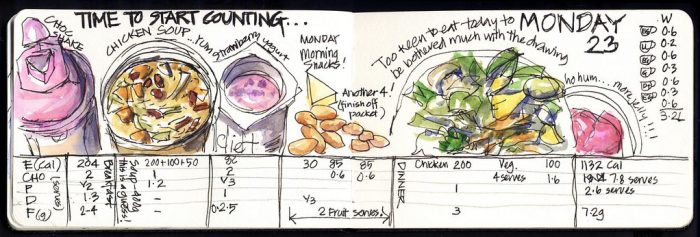 TIME TO START COUNTING...
CHOC
SHAKE
CHICKEN SOUP... YUM
strawberry yogurt
diet
MONDAY
Morning
Snacks!
Another 4!
(finish off
packet)
Too keen to eat today to
be bothered much with the drawing
MONDAY
23
ho hum... more jelly!!!
W
0.6
0.2
0.6
0.6
0.6
0.6
3.2L
E (Cal)
CHO
P
D
F (g)
(serves)
204
2
√2
1.3
2.4
Breakfast
Soup - 400g
this is a guess!
200+100+50
1
1.2
-
-
86
2
√3
1
0.2.5
30 85 85
0.6 0.6
√3
2 Fruit serves!
DINNER
Chicken 200 Veg. 100
4 serves 1.6
1
3
1132 Cal
7.8 serves
2.6 serves
7.2g